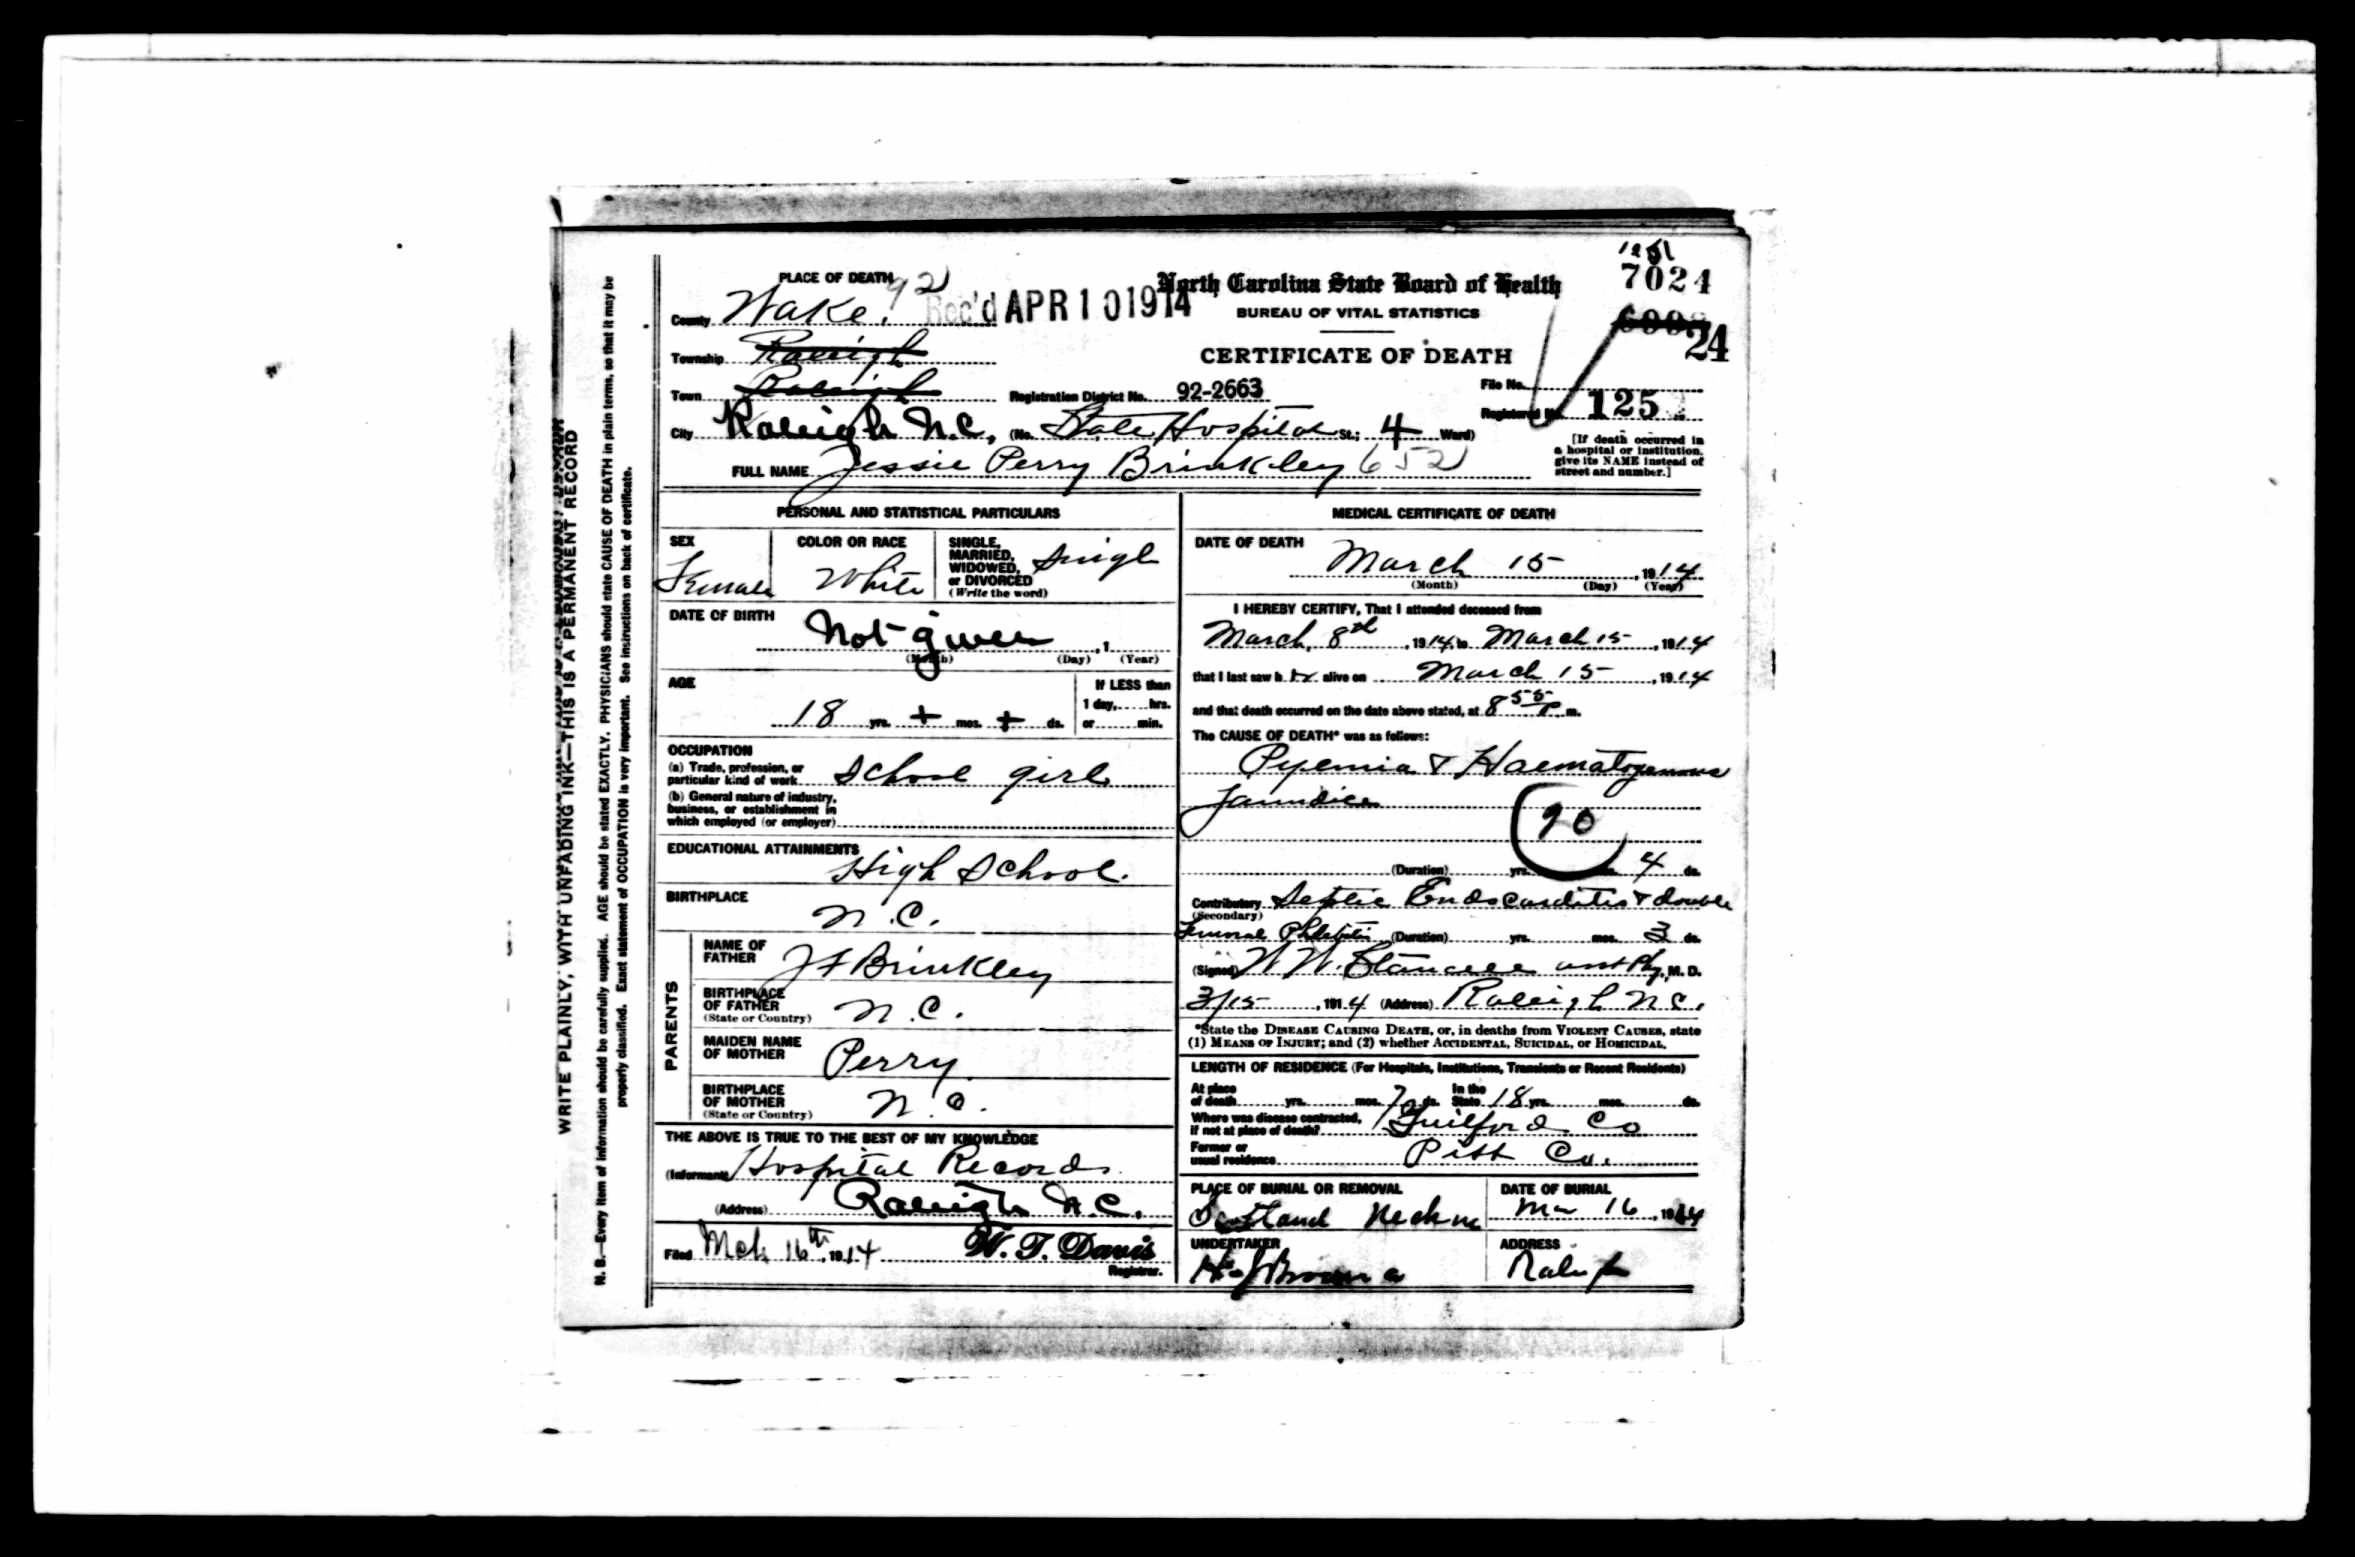 1251
7024
24
PLACE OF DEATH 92
County Wake. Rec'd APR 10 1914
North Carolina State Board of Health
BUREAU OF VITAL STATISTICS
CERTIFICATE OF DEATH
Township Raleigh
Town Raleigh Registration District No. 92-2663 File No.
Registered No. 125
City Raleigh N.C. (No. State Hospital St.; 4 Ward)
[If death occurred in a hospital or institution, give its NAME instead of street and number.]
FULL NAME Jessie Perry Brinkley 652
PERSONAL AND STATISTICAL PARTICULARS
SEX Female
COLOR OR RACE White
SINGLE, MARRIED, WIDOWED, or DIVORCED (Write the word) Singl
DATE OF BIRTH Not given , 1
(Month) (Day) (Year)
AGE 18 yrs. + mos. + ds.
If LESS than 1 day, hrs. or min.
OCCUPATION
(a) Trade, profession, or particular kind of work School girl
(b) General nature of industry, business, or establishment in which employed (or employer)
EDUCATIONAL ATTAINMENTS High School.
BIRTHPLACE N.C.
PARENTS
NAME OF FATHER J F Brinkley
BIRTHPLACE OF FATHER (State or Country) N.C.
MAIDEN NAME OF MOTHER Perry
BIRTHPLACE OF MOTHER (State or Country) N.C.
THE ABOVE IS TRUE TO THE BEST OF MY KNOWLEDGE
(Informant) Hospital Records
(Address) Raleigh N.C.
Filed Mch 16th, 1914 W. T. Davis
Registrar.
MEDICAL CERTIFICATE OF DEATH
DATE OF DEATH March 15 , 1914
(Month) (Day) (Year)
I HEREBY CERTIFY, That I attended deceased from
March, 8th , 1914 to March 15 , 1914
that I last saw her alive on March 15 , 1914
and that death occurred on the date above stated, at 8 55 P. m.
The CAUSE OF DEATH* was as follows:
Pyemia & Haematogenous
Jaundice
90
(Duration) yrs. mos. 4 ds.
Contributory Septic Endocarditis & double
(Secondary)
Femoral Phlebitis (Duration) yrs. mos. 3 ds.
(Signed) W W. Stancell asst Phy, M. D.
3/15 , 1914 (Address) Raleigh N.C.
*State the DISEASE CAUSING DEATH, or, in deaths from VIOLENT CAUSES, state
(1) MEANS OF INJURY; and (2) whether ACCIDENTAL, SUICIDAL, or HOMICIDAL.
LENGTH OF RESIDENCE (For Hospitals, Institutions, Transients or Recent Residents)
At place of death yrs. mos. 7 ds. In the State 18 yrs. mos. ds.
Where was disease contracted, if not at place of death? Guilford Co
Former or usual residence Pitt Co.
PLACE OF BURIAL OR REMOVAL Scotland Neck NC
DATE OF BURIAL Mar 16 , 1914
UNDERTAKER
ADDRESS Raleigh
WRITE PLAINLY, WITH UNFADING INK—THIS IS A PERMANENT RECORD
N. B.—Every item of information should be carefully supplied. AGE should be stated EXACTLY. PHYSICIANS should state CAUSE OF DEATH in plain terms, so that it may be
properly classified. Exact statement of OCCUPATION is very important. See instructions on back of certificate.